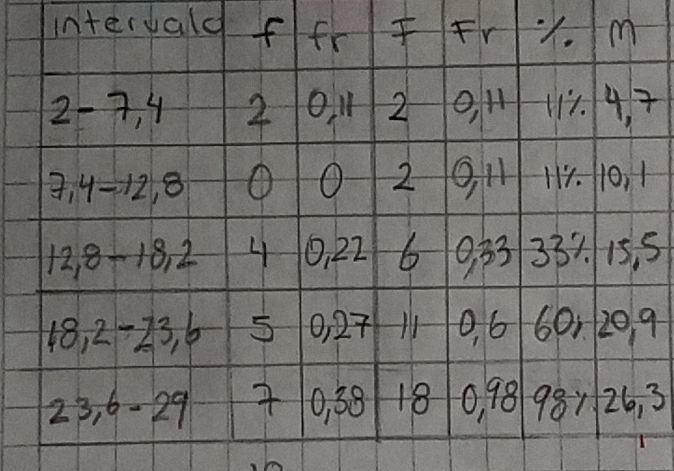 intervalo f fr F Fr % m
2-7,4 2 0,11 2 0,11 11% 4,7
7,4-12,8 0 0 2 0,11 11% 10,1
12,8-18,2 4 0,22 6 0,33 33% 15,5
18,2-23,6 5 0,27 11 0,6 60% 20,9
23,6-29 7 0,38 18 0,98 98% 26,3